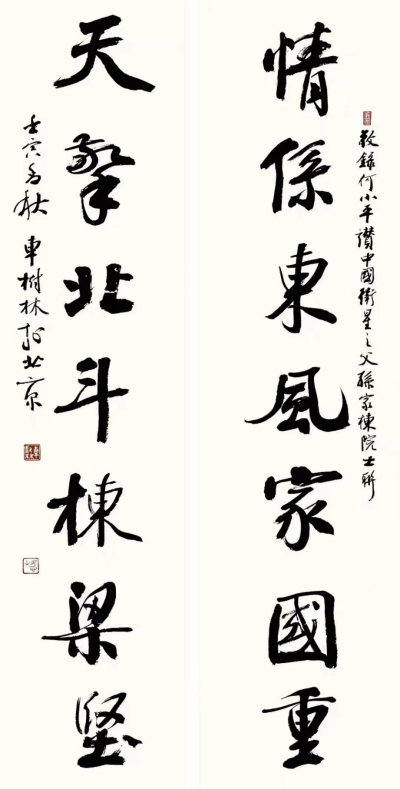 情係東風家國重
敬錄何小平讚中國衛星之父孫家棟院士聯
天擎北斗棟梁堅
壬寅秋 車樹林於北京